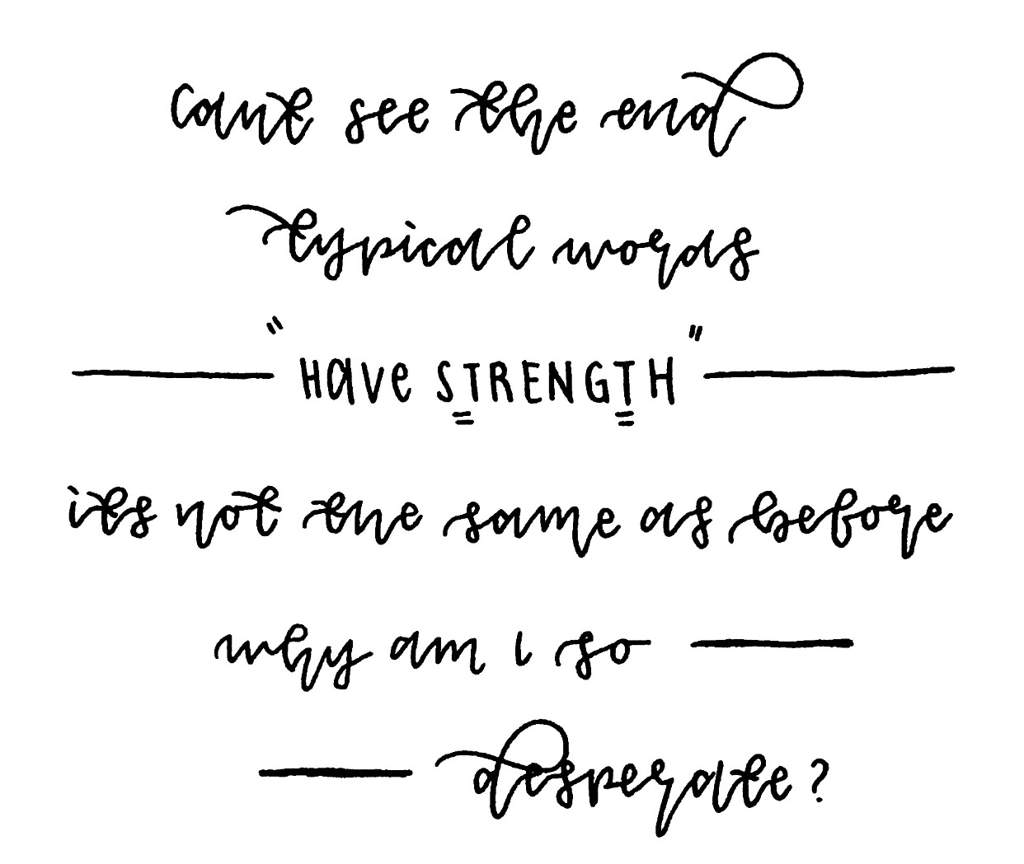 cant see the end
typical words
"HAVE STRENGTH"
its not the same as before
why am i so
desperate?